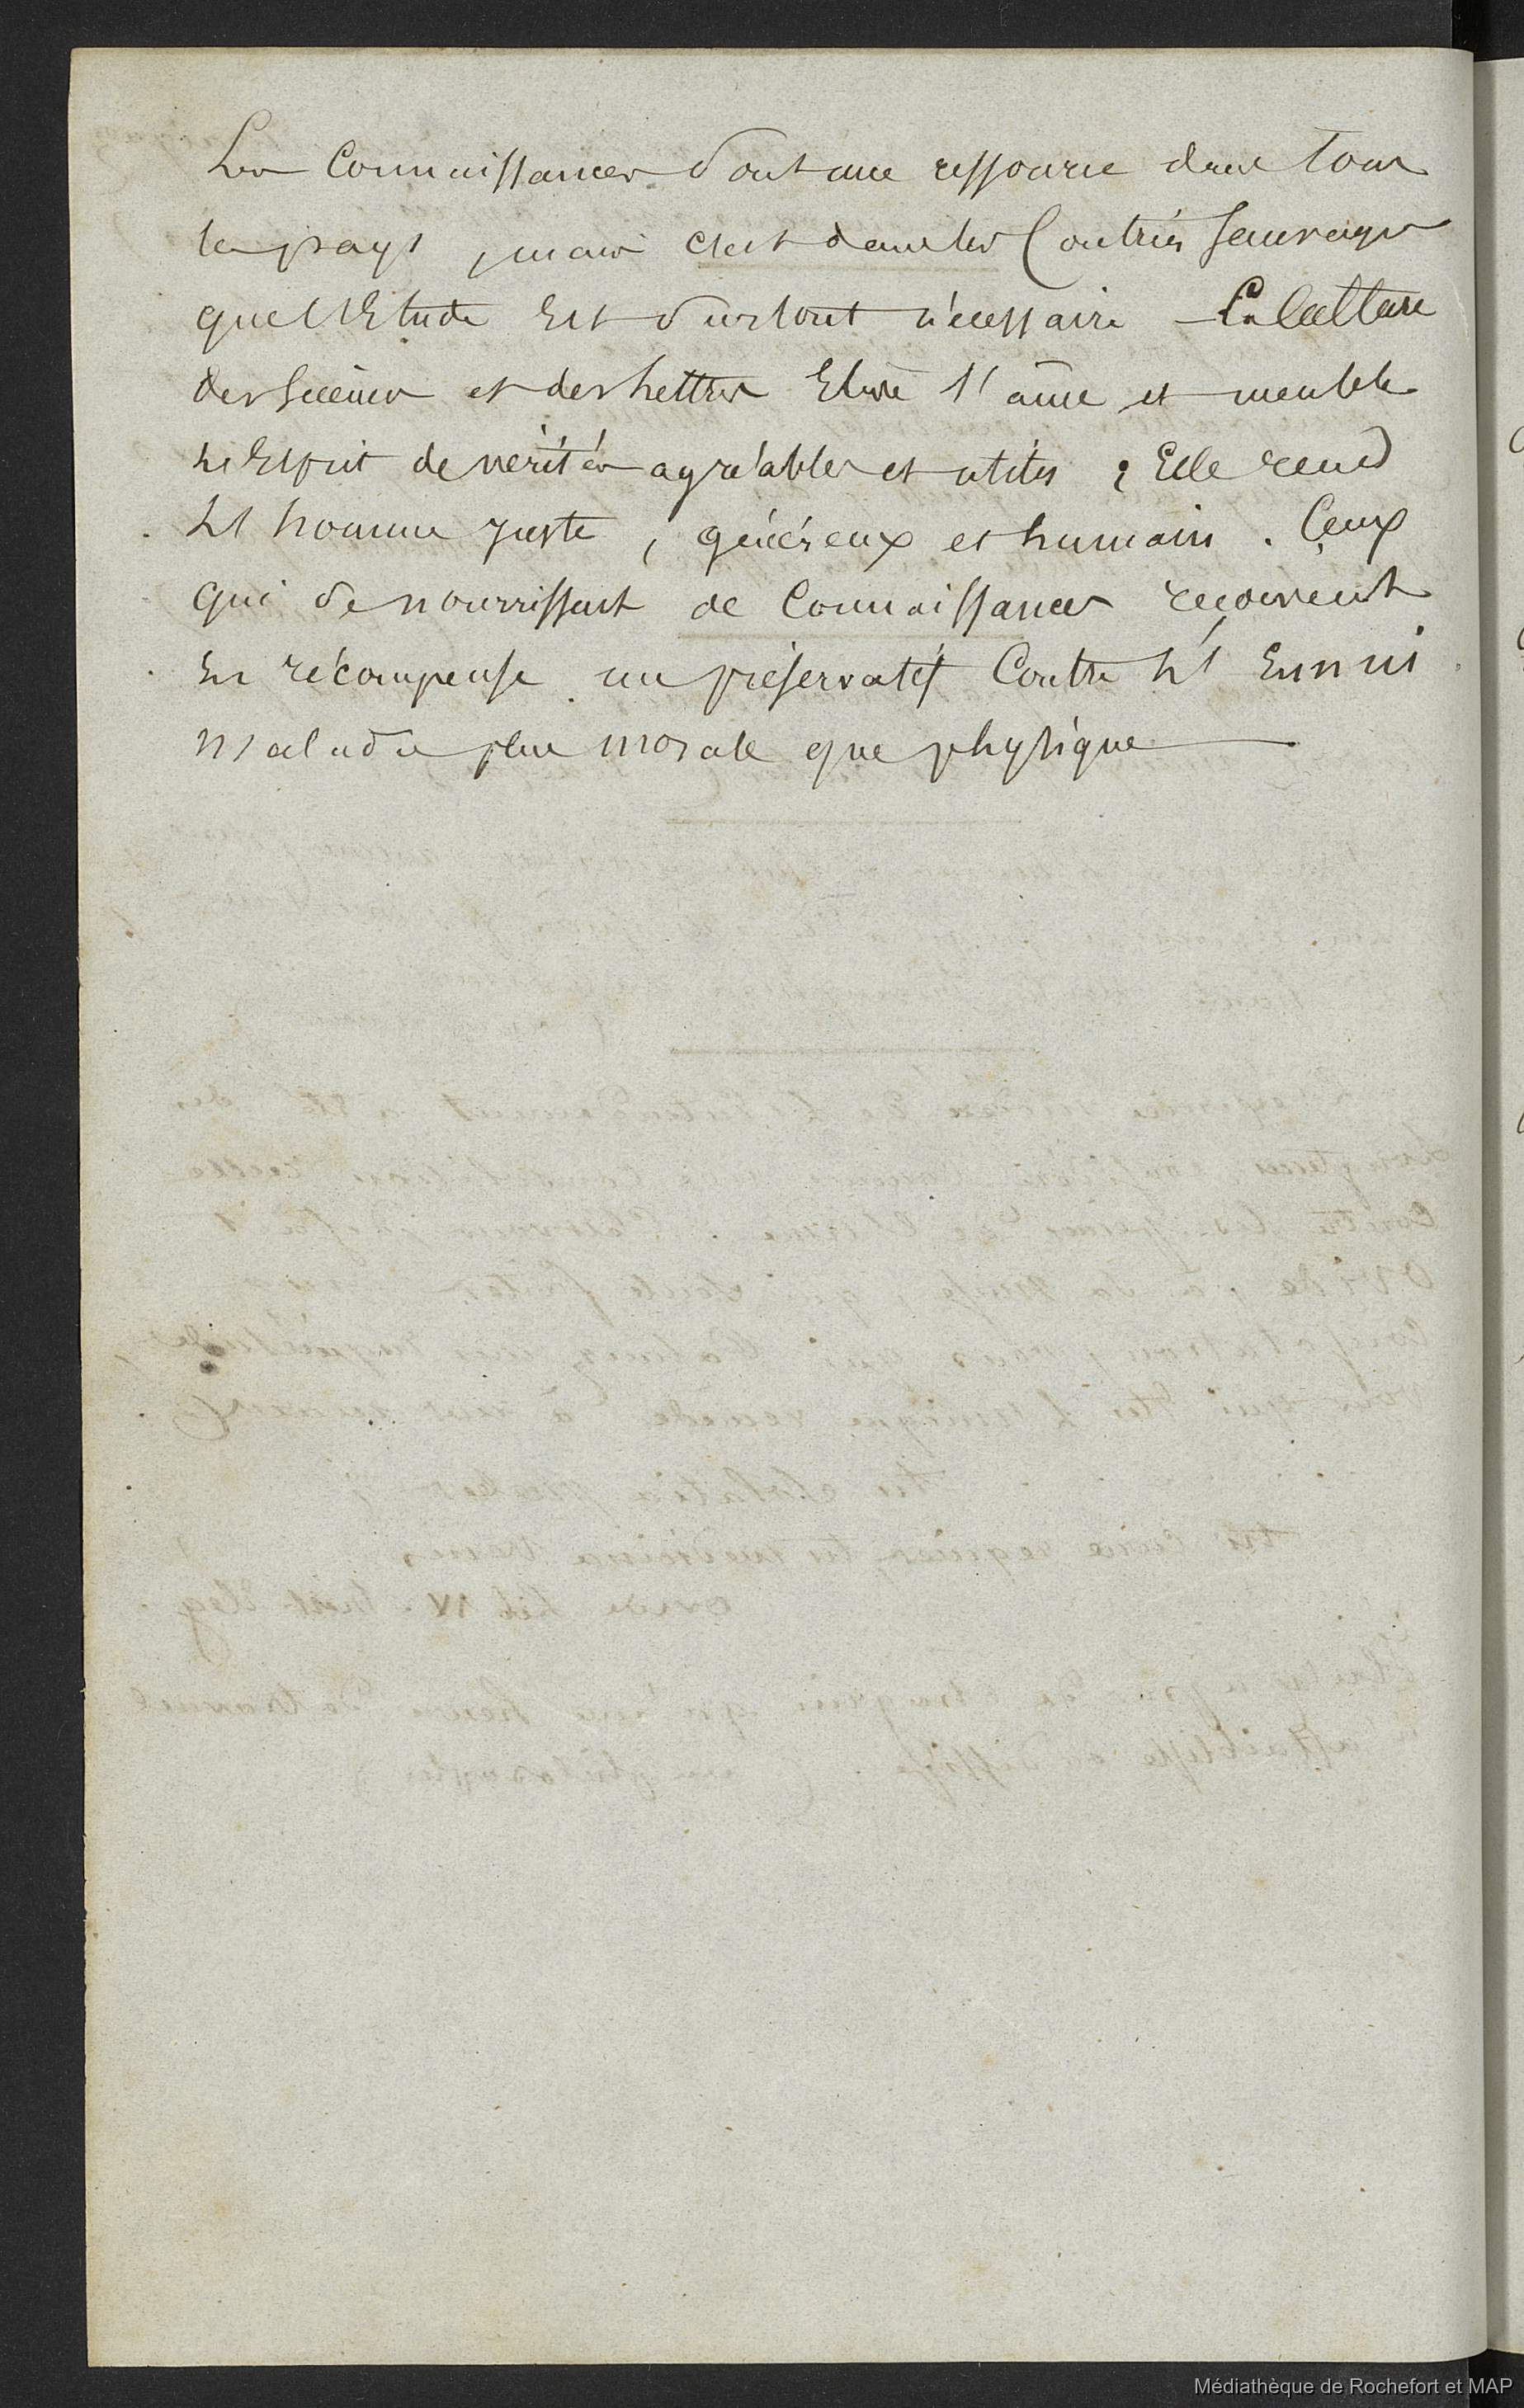 Les Connaissances sont une ressource dans tous
les pays, mais c'est dans les Contrées Sauvages
que l'Etude Est surtout nécessaire – La Culture
des Sciences et des Lettres Elève l'âme et meuble
L'Esprit de vérités agréables et utiles ; Elle rend
L'homme juste, généreux et humain. Ceux
qui se nourrissent de Connaissances reçoivent
En récompense un préservatif Contre L'Ennui
Maladie plus morale que physique —
Médiathèque de Rochefort et MAP